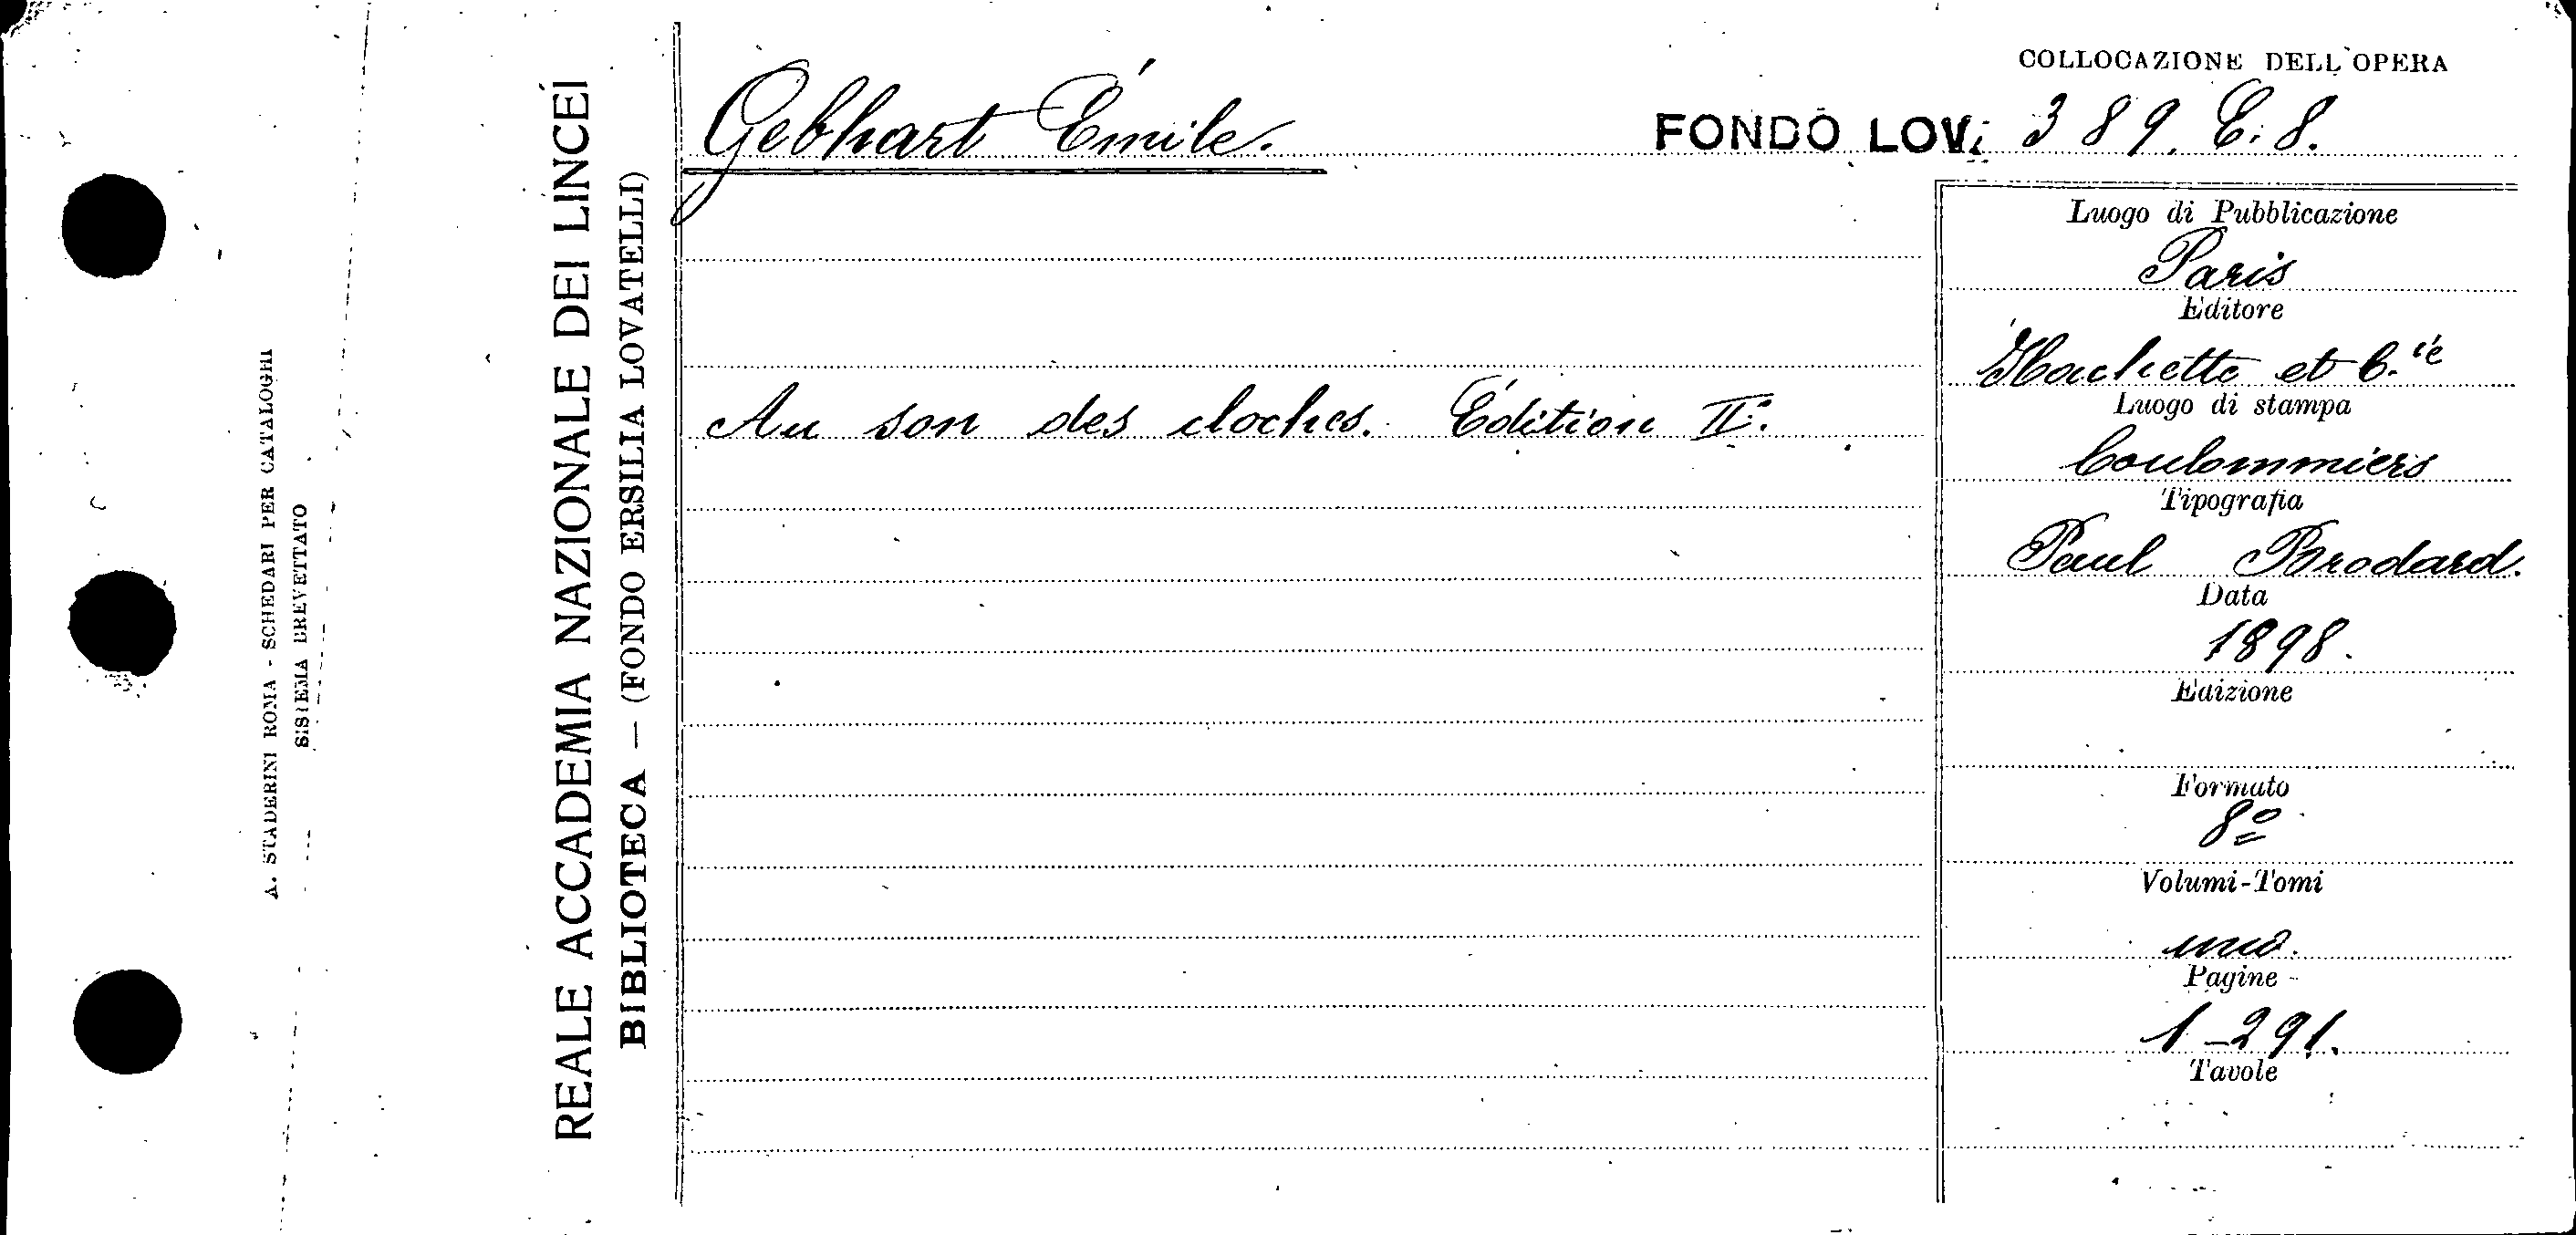 A. STADERINI ROMA - SCHEDARI PER CATALOGHI
SISTEMA BREVETTATO
REALE ACCADEMIA NAZIONALE DEI LINCEI
BIBLIOTECA — (FONDO ERSILIA LOVATELLI)
COLLOCAZIONE DELL'OPERA
Gebhart Émile. FONDO LOV. 389. C. 8.
Au son des cloches. Édition IIe.
Luogo di Pubblicazione
Paris
Editore
Hachette et C.ie
Luogo di stampa
Coulommiers
Tipografia
Paul Brodard.
Data
1898.
Edizione
Formato
8º
Volumi-Tomi
uno.
Pagine
1-291.
Tavole